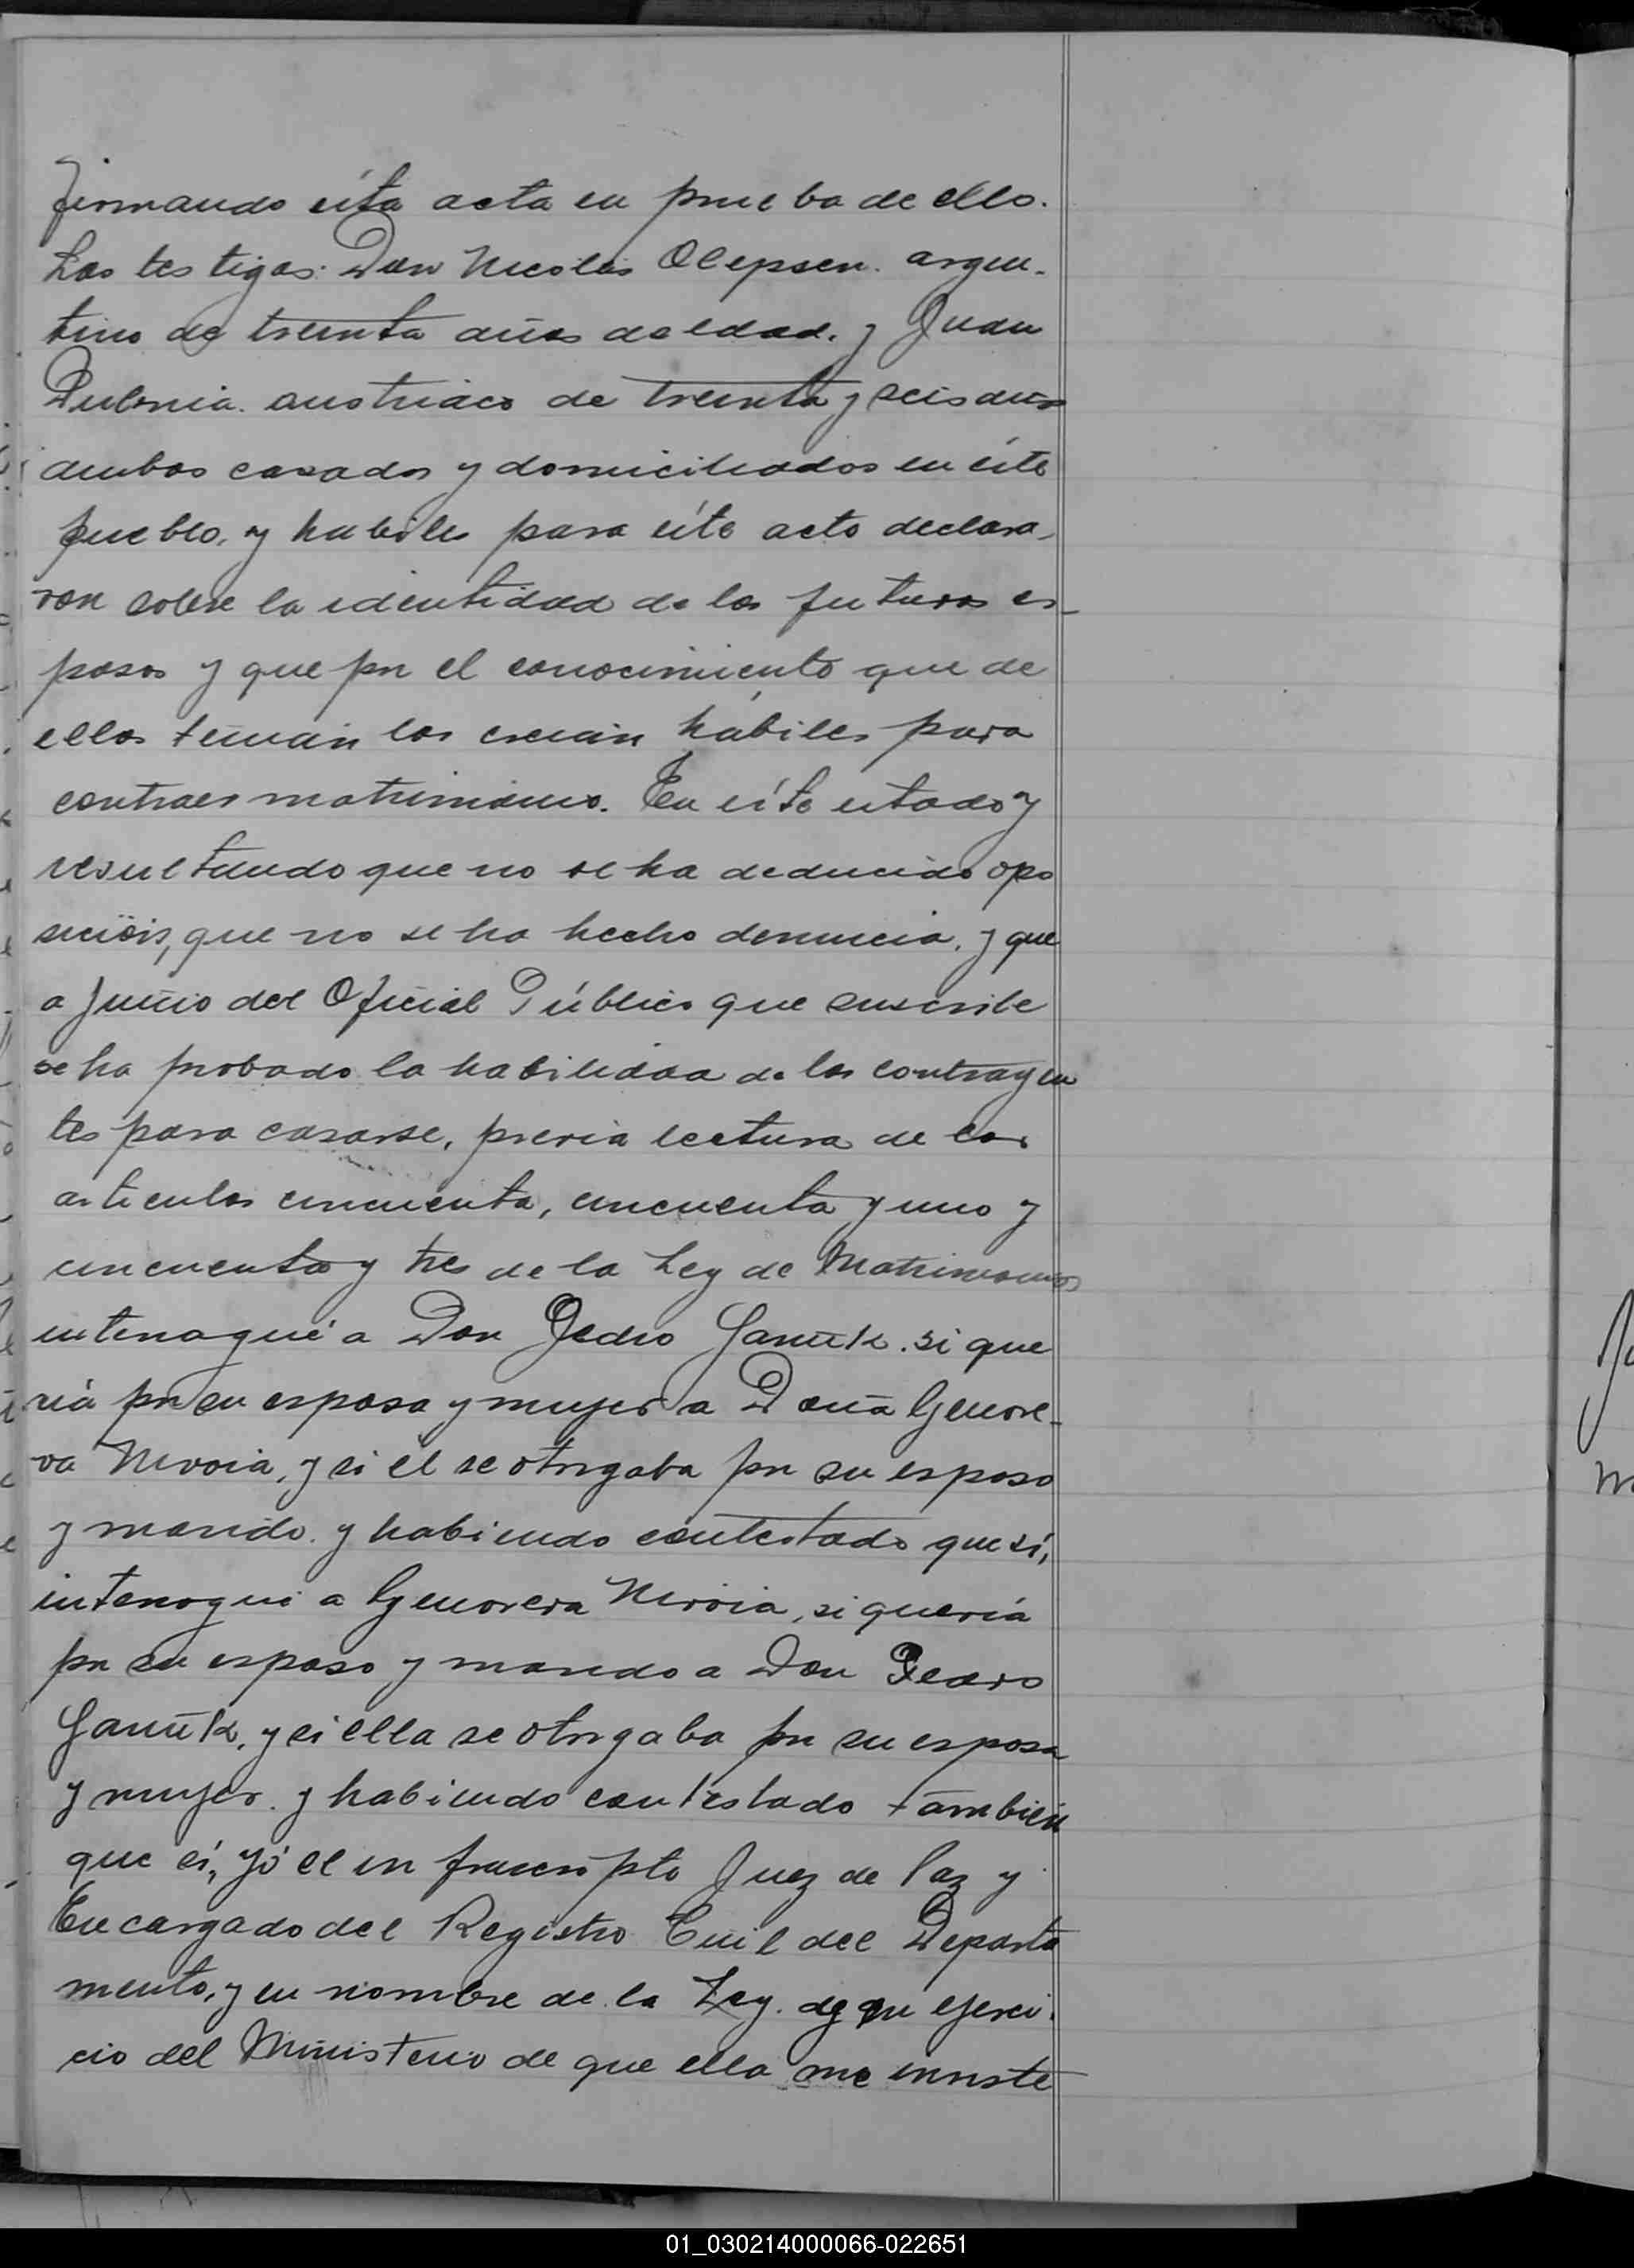 firmando ésta acta en prueba de ello.
Los testigos: Don Nicolás Olepsen. argen-
tino de treinta años de edad. y Juan
Dubnia. austriaco de treinta y seis años
ambos casados y domiciliados en éste
pueblo, y habiles para éste acto declara-
ron sobre la identidad de los futuros es-
posos y que por el conocimiento que de
ellos tenían los creían hábiles para
contraer matrimonio. En éste estado y
resultando que no se ha deducido opo
sición, que no se ha hecho denuncia, y que
a juicio del Oficial Público que suscribe
se ha probado la habilidad de los contrayen
tes para casarse, previa lectura de los
articulos cincuenta, cincuenta y uno y
cincuenta y tres de la Ley de Matrimonio
interrogué a Don Pedro Ganuk. si que
ría por su esposa y mujer a Doña Genove-
va Nervia, y si él se otorgaba por su esposo
y marido. y habiendo contestado que sí,
interrogué a Genoveva Nervia, si quería
por su esposo y marido a Don Pedro
Ganuk, y si ella se otorgaba por su esposa
y mujer. y habiendo contestado también
que sí, yó el infrascripto Juez de Paz y
Encargado del Registro Civil del Departa
mento, y en nombre de la Ley. de en ejerci-
cio del Ministerio de que ella me inviste
01_030214000066-022651